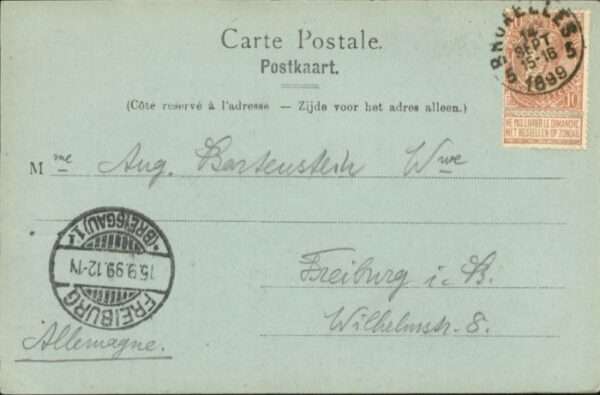 Carte Postale.
Postkaart.
(Côté réservé à l'adresse — Zijde voor het adres alleen.)
BRUXELLES 5
14
SEPT
15-16
1899
5
10
NE PAS LIVRER LE DIMANCHE
NIET BESTELLEN OP ZONDAG
Mme Aug. Bartenstein Wwe
Freiburg i. B.
Wilhelmstr. 8.
(BREISGAU) 1.
15.9.99.12-1N
FREIBURG
Allemagne.